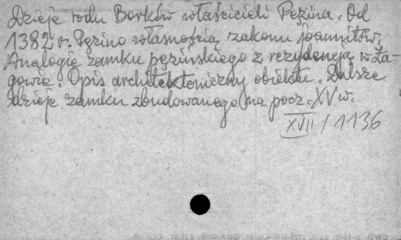 Dzieje rodu Borków właścicieli Pęzina. Od
1382 r. Pęzino własnością zakonu joannitów.
Analogie zamku pęzińskiego z rezydencją w Ła-
gowie. Opis architektoniczny obiektu. Dalsze
dzieje zamku zbudowanego na pocz. XV w.
XVII/1136